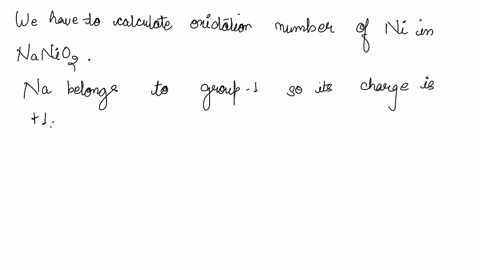 We have to calculate oxidation number of Ni in
NaNiO2.
Na belongs to group-1 so its charge is
+1.